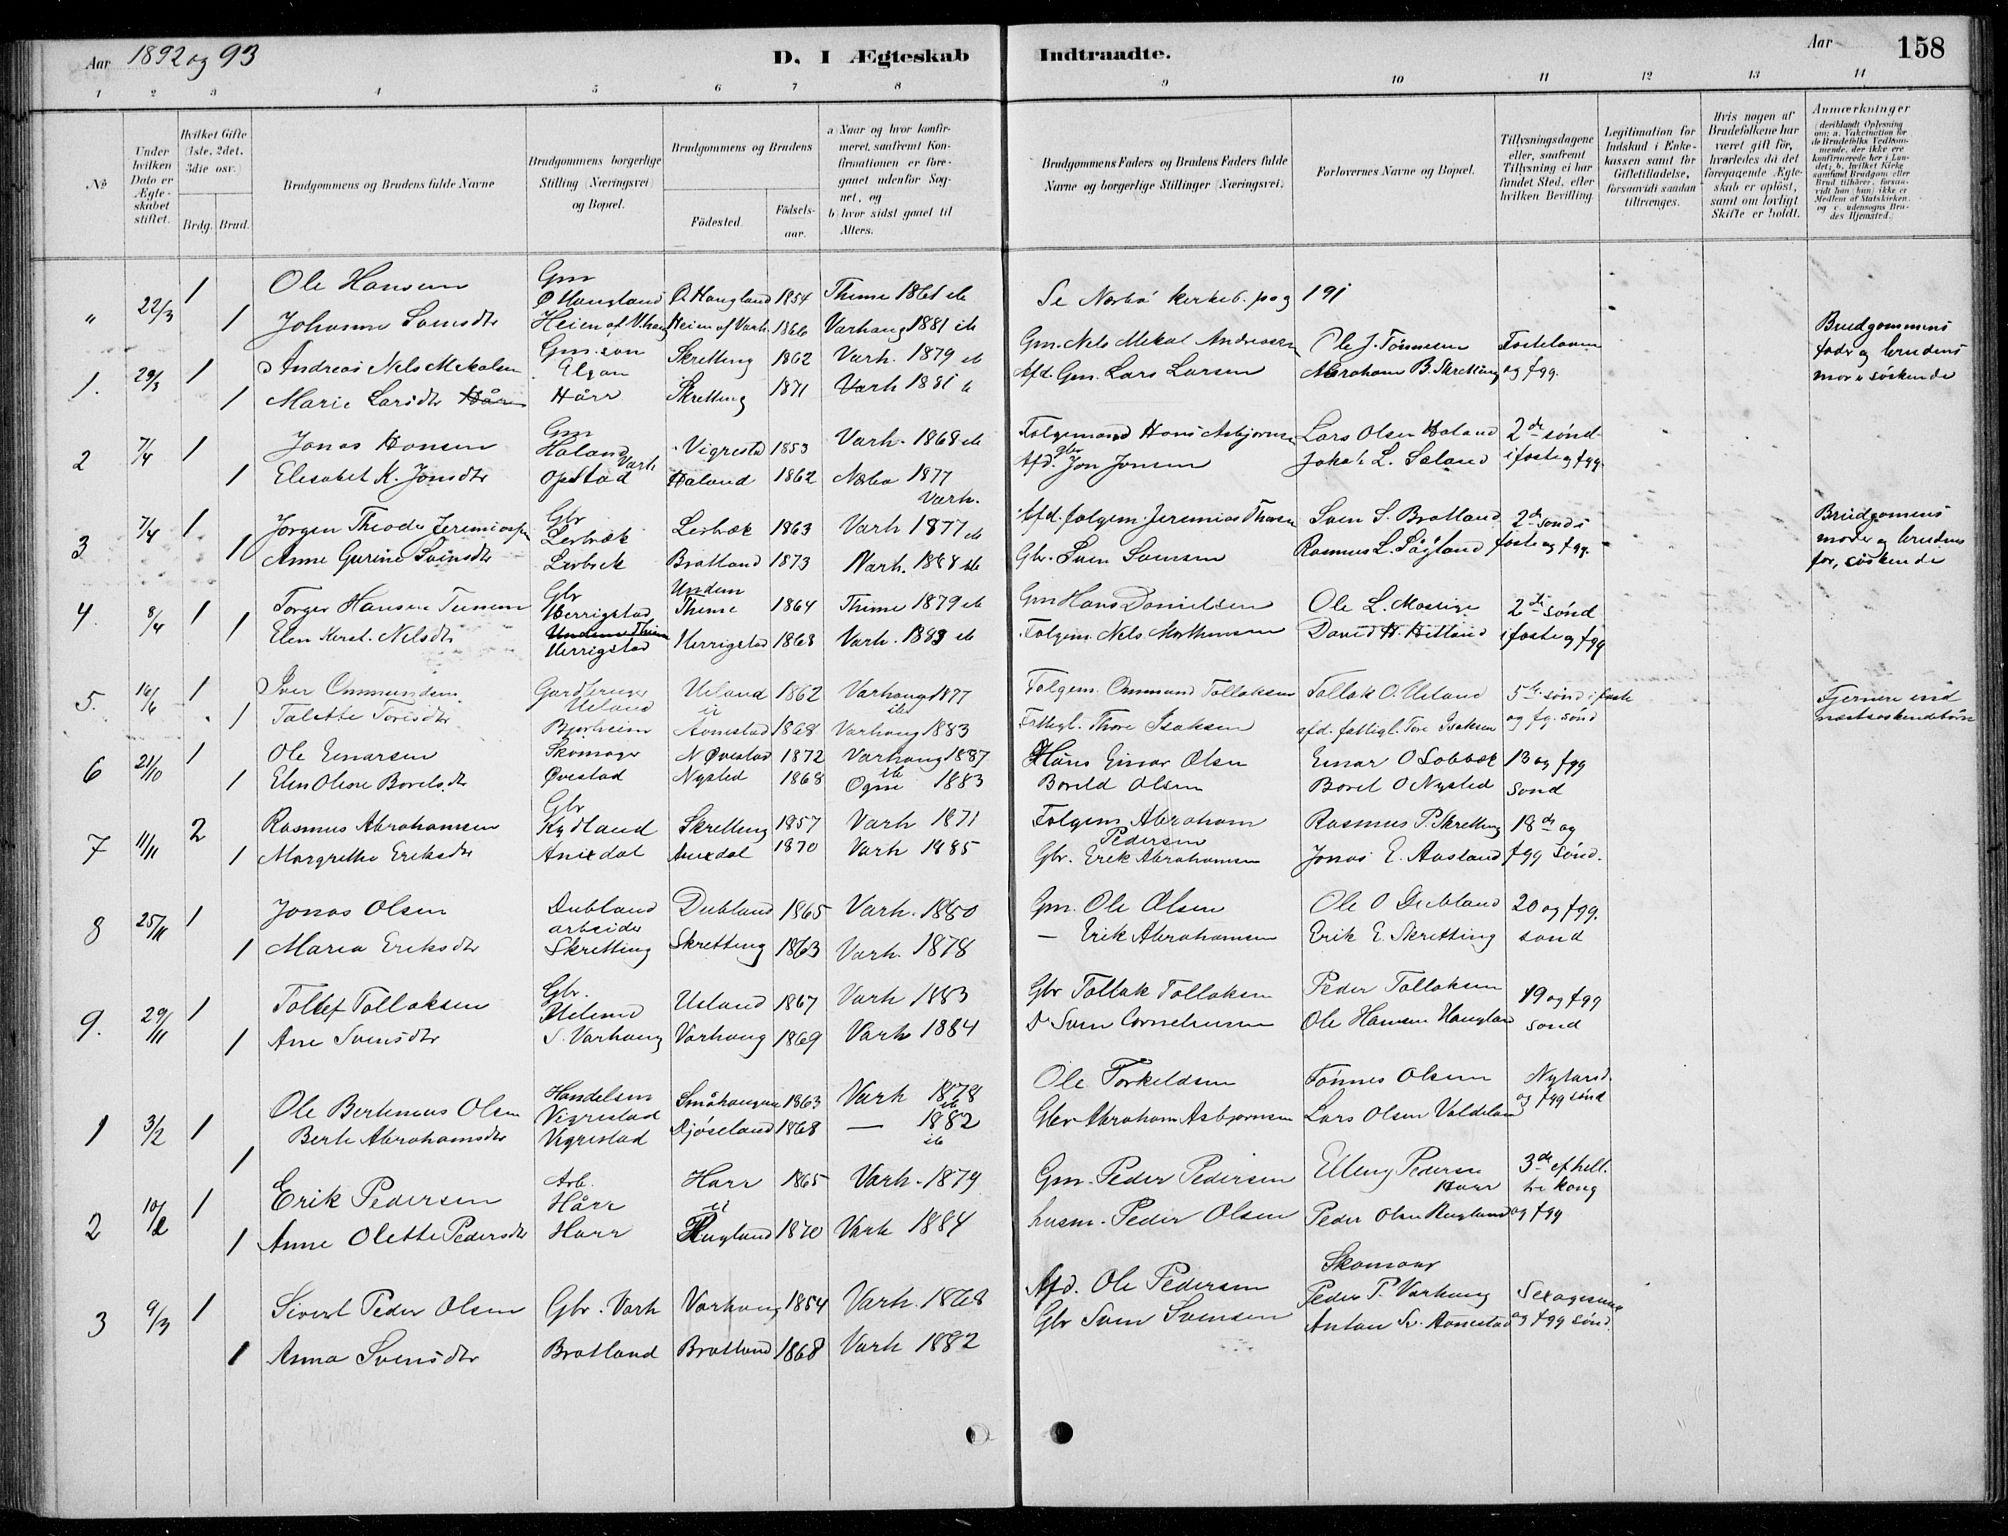 Aar 1892 og 93
D. I Ægteskab Indtraadte.
Aar
158
1 2 3 4 5 6 7 8 9 10 11 12 13 14
No
Under hvilken Dato er Ægteskabet stiftet.
Hvilket Gifte (1ste, 2det, 3die osv.)
Brdg. Brud.
Brudgommens og Brudens fulde Navne
Brudgommens borgerlige Stilling (Næringsvei) og Bopæl.
Brudgommens og Brudens
Fødested.
Fødselsaar.
a) Naar og hvor konfirmeret, saafremt Konfirmationen er foregaaet udenfor Sognet, og
b) hvor sidst gaaet til Alters.
Brudgommens Faders og Brudens Faders fulde Navne og borgerlige Stillinger (Næringsvei).
Forlovernes Navne og Bopæl.
Tillysningsdagene eller, saafremt Tillysning ei har fundet Sted, efter hvilken Bevilling.
Legitimation for Indskud i Enkekassen samt for Giftetilladelse, forsaavidt saadan tiltrænges.
Hvis nogen af Brudefolkene har været gift før, hvorledes da det foregaaende Ægteskab er opløst, samt om lovligt Skifte er holdt.
Anmærkninger
" 22/3 1 Ole Hansen Gm Ø Haugland Ø. Haugland 1854 Thime 1861 ib Se Nærbø kirkeb. pag 191
1 Johanne Svensdtr Heien af V.haug Heien af Varh. 1866 Varhaug 1881 ib
1. 29/3 1 Andreas Nels Mekalsen Gm. søn Elgan Skretting 1862 Varh. 1879 ib Gm. Nels Mekal Andreasen Ole J. Tønnesen Fastelaven Brudgommens fader og brudens mor e søskende
1 Marie Larsdtr Hårr Skretting 1871 Varh 1881 Afd. Gm. Lars Larsen Abraham B. Skretting og fgg.
2 7/4 1 Jonas Hansen Gm Håland Varh Vigrestad 1853 Varh. 1868 ib Folgemand Hans Asbjørnsen Lars Olsen Haland 2de sønd
1 Elesabet K. Jonsdtr Opstad Haland 1862 Nærbø 1877 Varh. Afd. gbr Jon Jonsen Jakob L. Saland i faste og fgg.
3 7/4 1 Jørgen Theodor Jeremiassen Gbr Lerbrek Lerbrek 1863 Varh 1877 ib Afd. folgem. Jeremias Thorsen Sven S. Bratland 2de sønd i Brudgomens moder og brudens far, søskende
1 Anne Gurine Svensdtr Lerbrek Bratland 1873 Varh. 1888 ib Gbr. Sven Svensen Rasmus L. Søyland faste og fgg.
4. 8/4 1 Torger Hansen Gbr Herrigstad Undem Thime 1864 Thime 1879 ib Gm Hans Danielsen Ole L. Mossige 2de sønd
1 Elen Kerst. Nelsdtr Herrigstad Herrigstad 1868 Varh. 1883 ib Folgem. Nels Mortensen David H. Hetland i faste og fgg
5. 16/6 1 Iver Ommundsen Gardbruger Ueland Ueland 1862 Varhaug 1877 ib Folgem. Ommund Tollaksen Tollak O. Ueland 5te sønd i faste Fjernere end næstsøskendebørn
1 Talette Toresdtr Bjorheim Aanestad 1868 Varhaug 1883 Fattigl. Thore Isaksen afd. fattigl. Tore Isaksen og fg. sønd
6 21/10 1 Ole Einarsen Skomager N Øvestad 1872 Varhaug 1887 ib Hans Einar Olsen Einar O Lobbek 13 og fgg
1 Elen Olene Borelsdtr Øvestad Nysted 1868 Ogne 1883 Boreld Olsen Borel O Nysted sond
7 11/11 2 Rasmus Abrahamsen Gbr Kydland Skretting 1857 Varh 1871 Folgem. Abraham Pedersen Rasmus P. Skretting 18de og
1 Margrethe Eriksdtr Anixdal Anixdal 1870 Varh 1885 Gbr. Erik Abrahamsen Jonas E. Aasland fgg sønd.
8 25/11 1 Jonas Olsen Dubland arbeider Dubland 1865 Varh. 1880 Gm. Ole Olsen Ole O Dubland 20 og fgg.
1 Maria Eriksdtr Skretting Skretting 1863 Varh. 1878 — Erik Abrahamsen Erik E. Skretting sond
9. 29/11 1 Tollef Tollaksen Gbr. Ueland Ueland 1867 Varh 1883 Gbr Tollak Tollaksen Peder Tollaksen 19 og fgg
1 Ane Svensdtr S. Varhaug Varhaug 1869 Varh 1884 D Sven Corneliusen Ole Hansen Haugland sond
1 3/2 1 Ole Bertinius Olsen Handelsm Vigrestad Småhaugene 1863 Varh 1878 ib Ole Torkeldsen Tønnes Olsen Nytarsd. og fgg sønd
1 Berte Abrahamsdtr Vigrestad Djøseland 1868 — 1882 ib Gbr Abraham Asbjørnsen Lars Olsen Valdeland
2 10/2 1 Erik Pedersen Arb. Hårr Harr 1865 Varh. 1879 Gm. Peder Pedersen Elleng Pedersen Haar 3de ef hell. tre kong
1 Anne Olette Pedersdtr Harr Rugland 1870 Varh 1884 husm. Peder Olsen Peder Olsen Rugland og fgg
3 9/3 1 Sivert Peder Olsen Gbr. Varh Varhaug 1854 Varh. 1868 Afd. Ole Pedersen Skomager Peder P. Varhaug Sexagesima
1 Anna Svensdtr Bratland Bratland 1868 Varh 1882 Gbr Sven Svensen Anton Sv. Aanestad og fgg sønd.